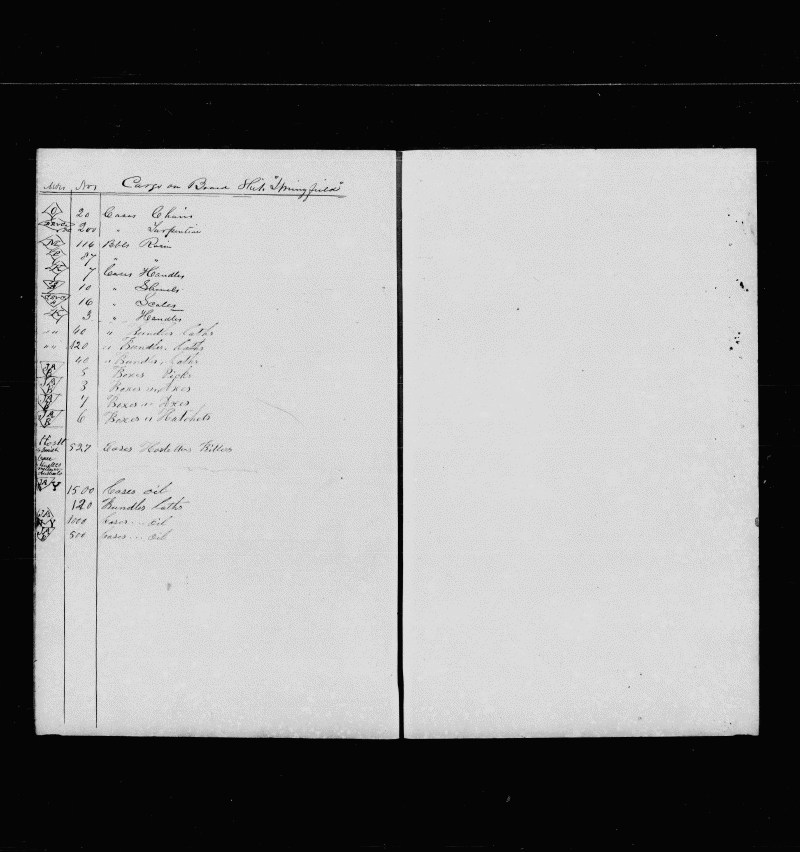 Nos Cargo on Board Ship "Springfield"
20 Cases Chairs
200 " Turpentine
116 Bbls Rosin
87 " "
7 Cases Handles
10 " Shovels
16 " Scales
3 " Handles
" " 40 " Bundles Laths
" " 120 " Bundles Laths
40 " Bundles Laths
5 Boxes Picks
3 Boxes " Axes
7 Boxes " Axes
6 Boxes " Hatchets
527 Cases Hostetters Bitters
1500 Cases oil
120 Bundles Laths
1000 Cases ... oil
500 Cases ... oil